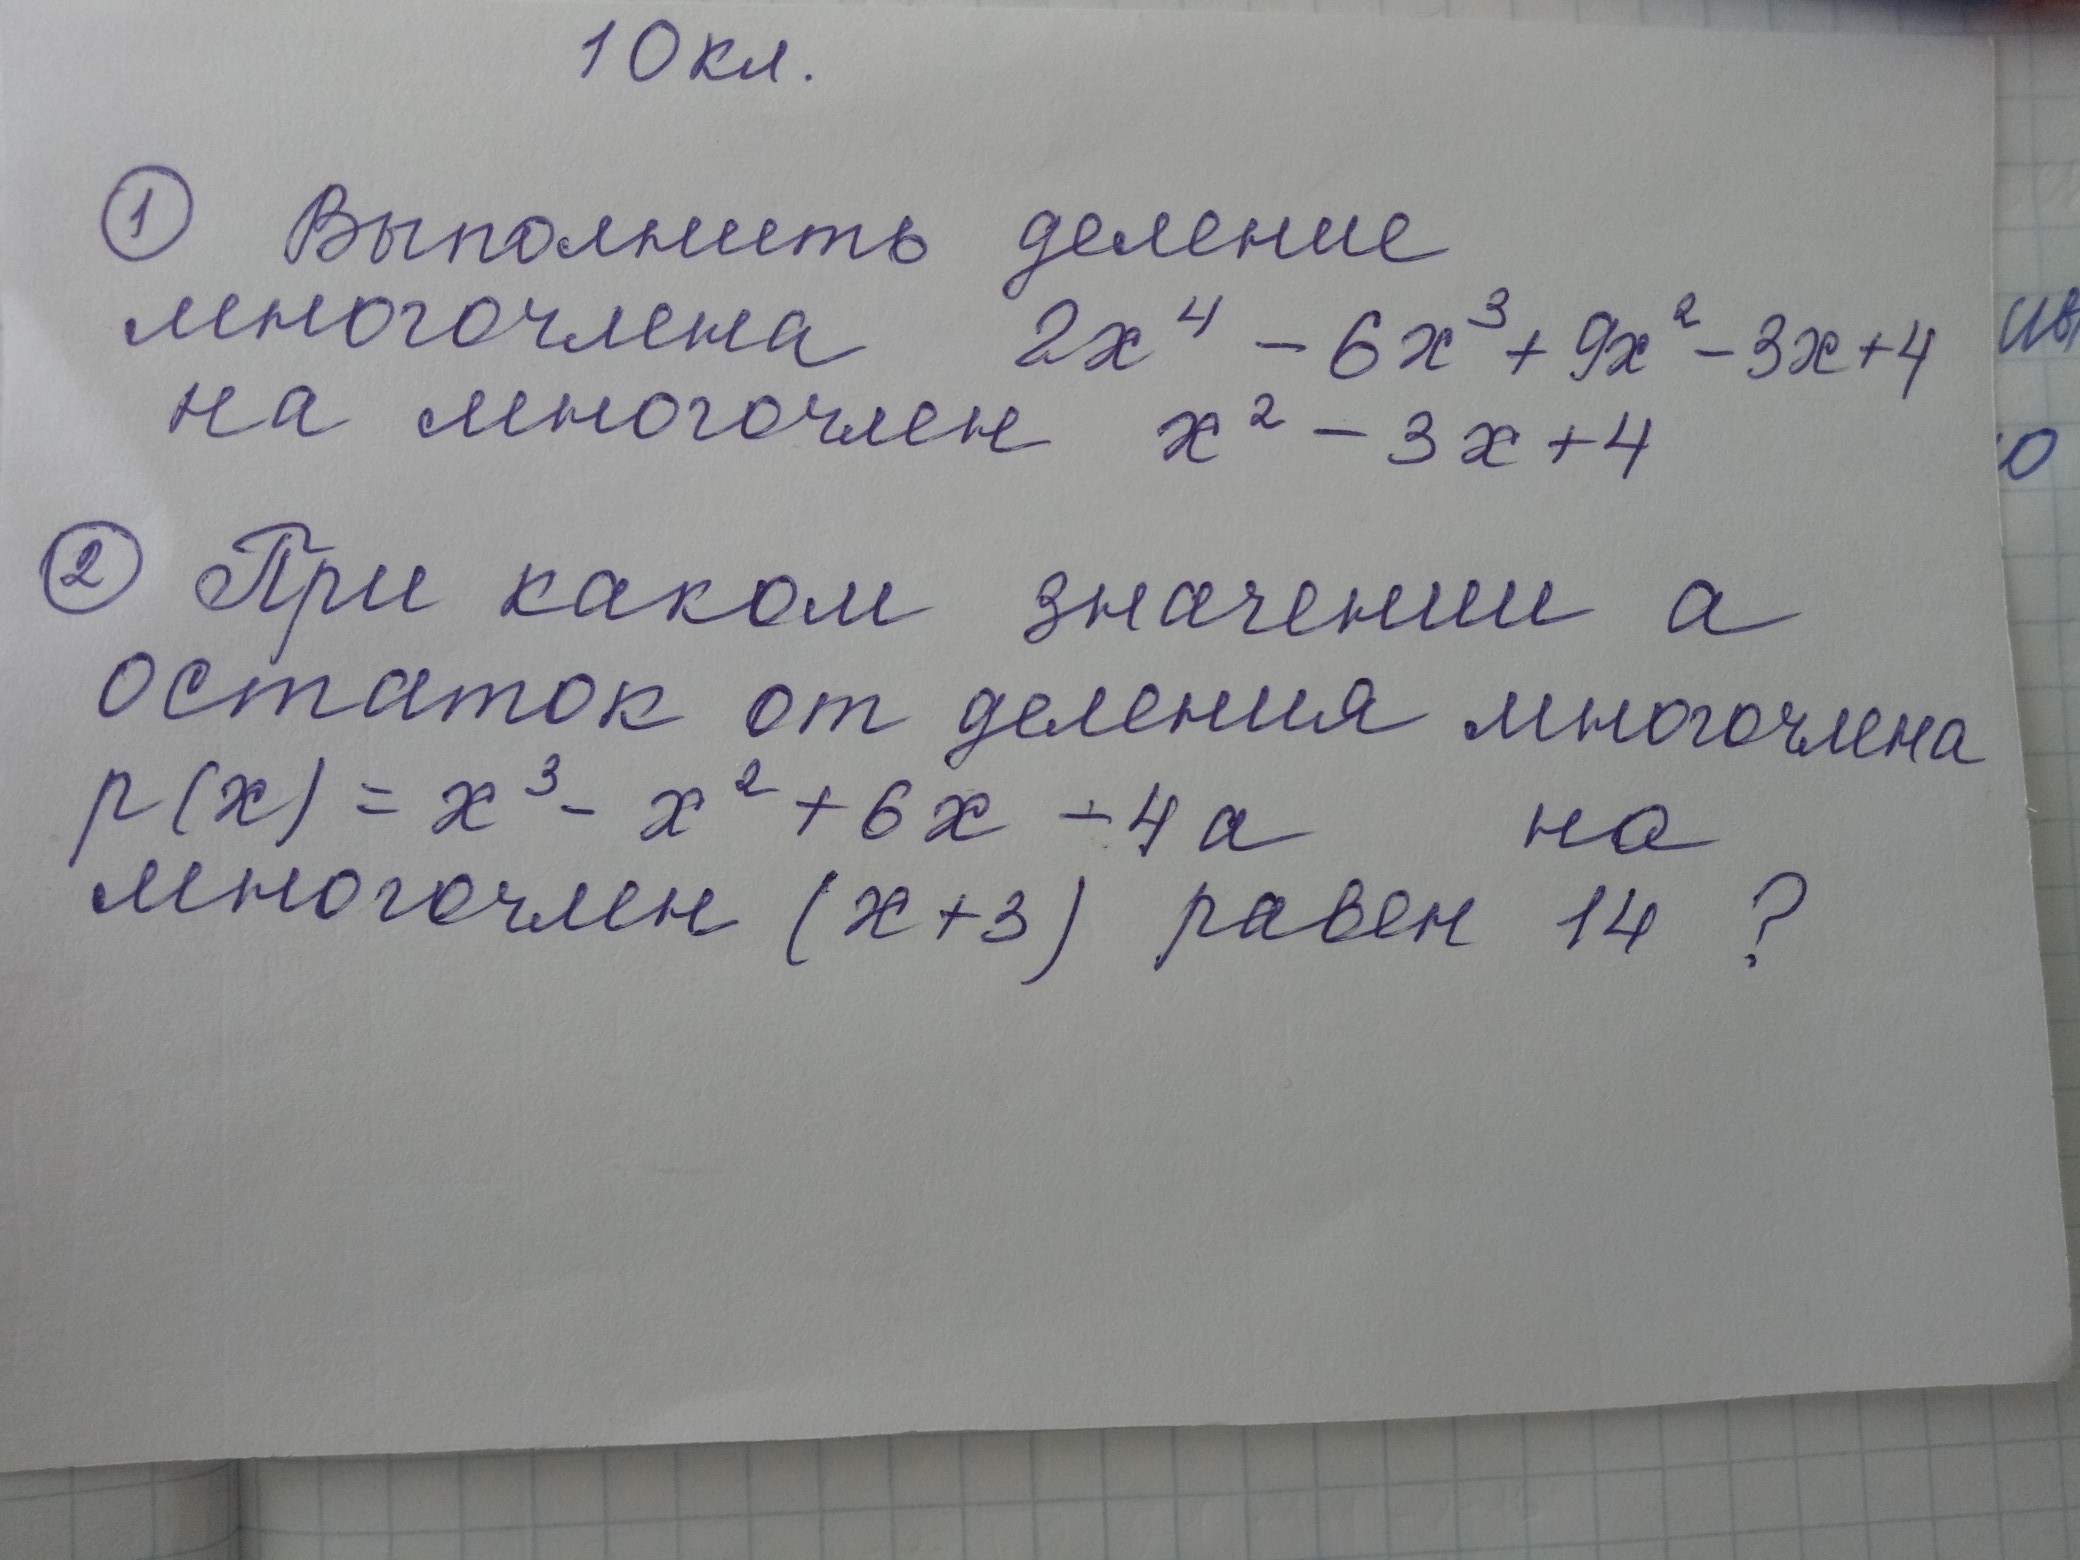 10 кл.
① Выполнить деление
многочлена 2x⁴ - 6x³ + 9x² - 3x + 4
на многочлен x² - 3x + 4
② При каком значении а
остаток от деления многочлена
p(x) = x³ - x² + 6x - 4a на
многочлен (x+3) равен 14 ?